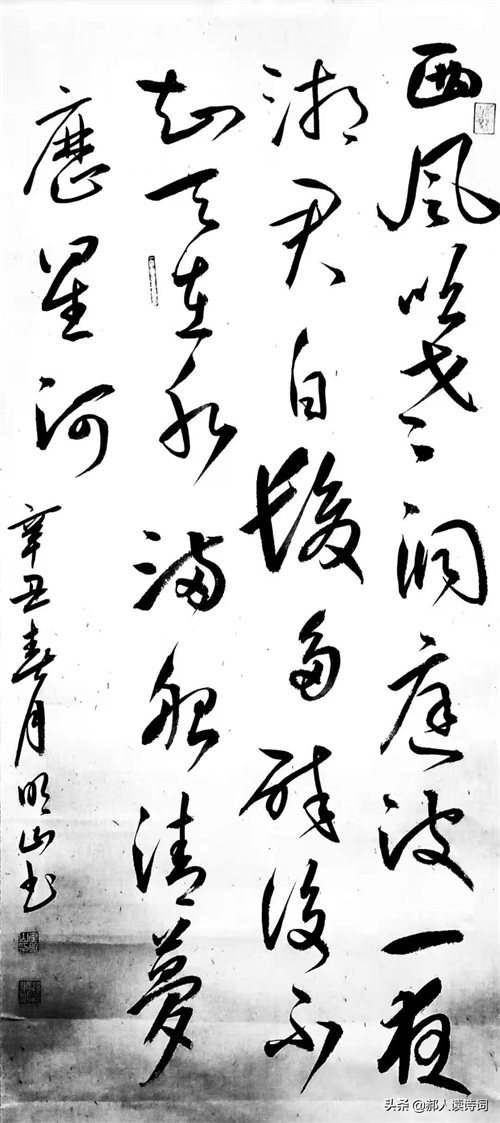 西風吹老洞庭波一夜
湘君白髮多醉後不
知天在水滿船清夢
壓星河
辛丑春月明山書
头条 @郝人读诗词